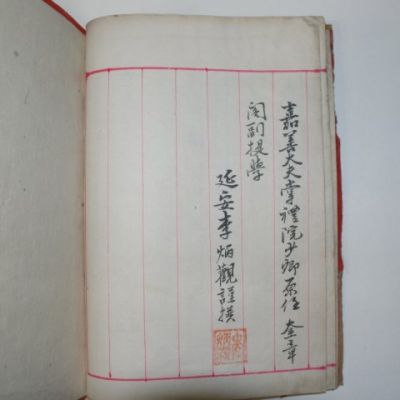 嘉善大夫掌禮院少卿原任奎章
閣副提學
延安李炳觀謹撰